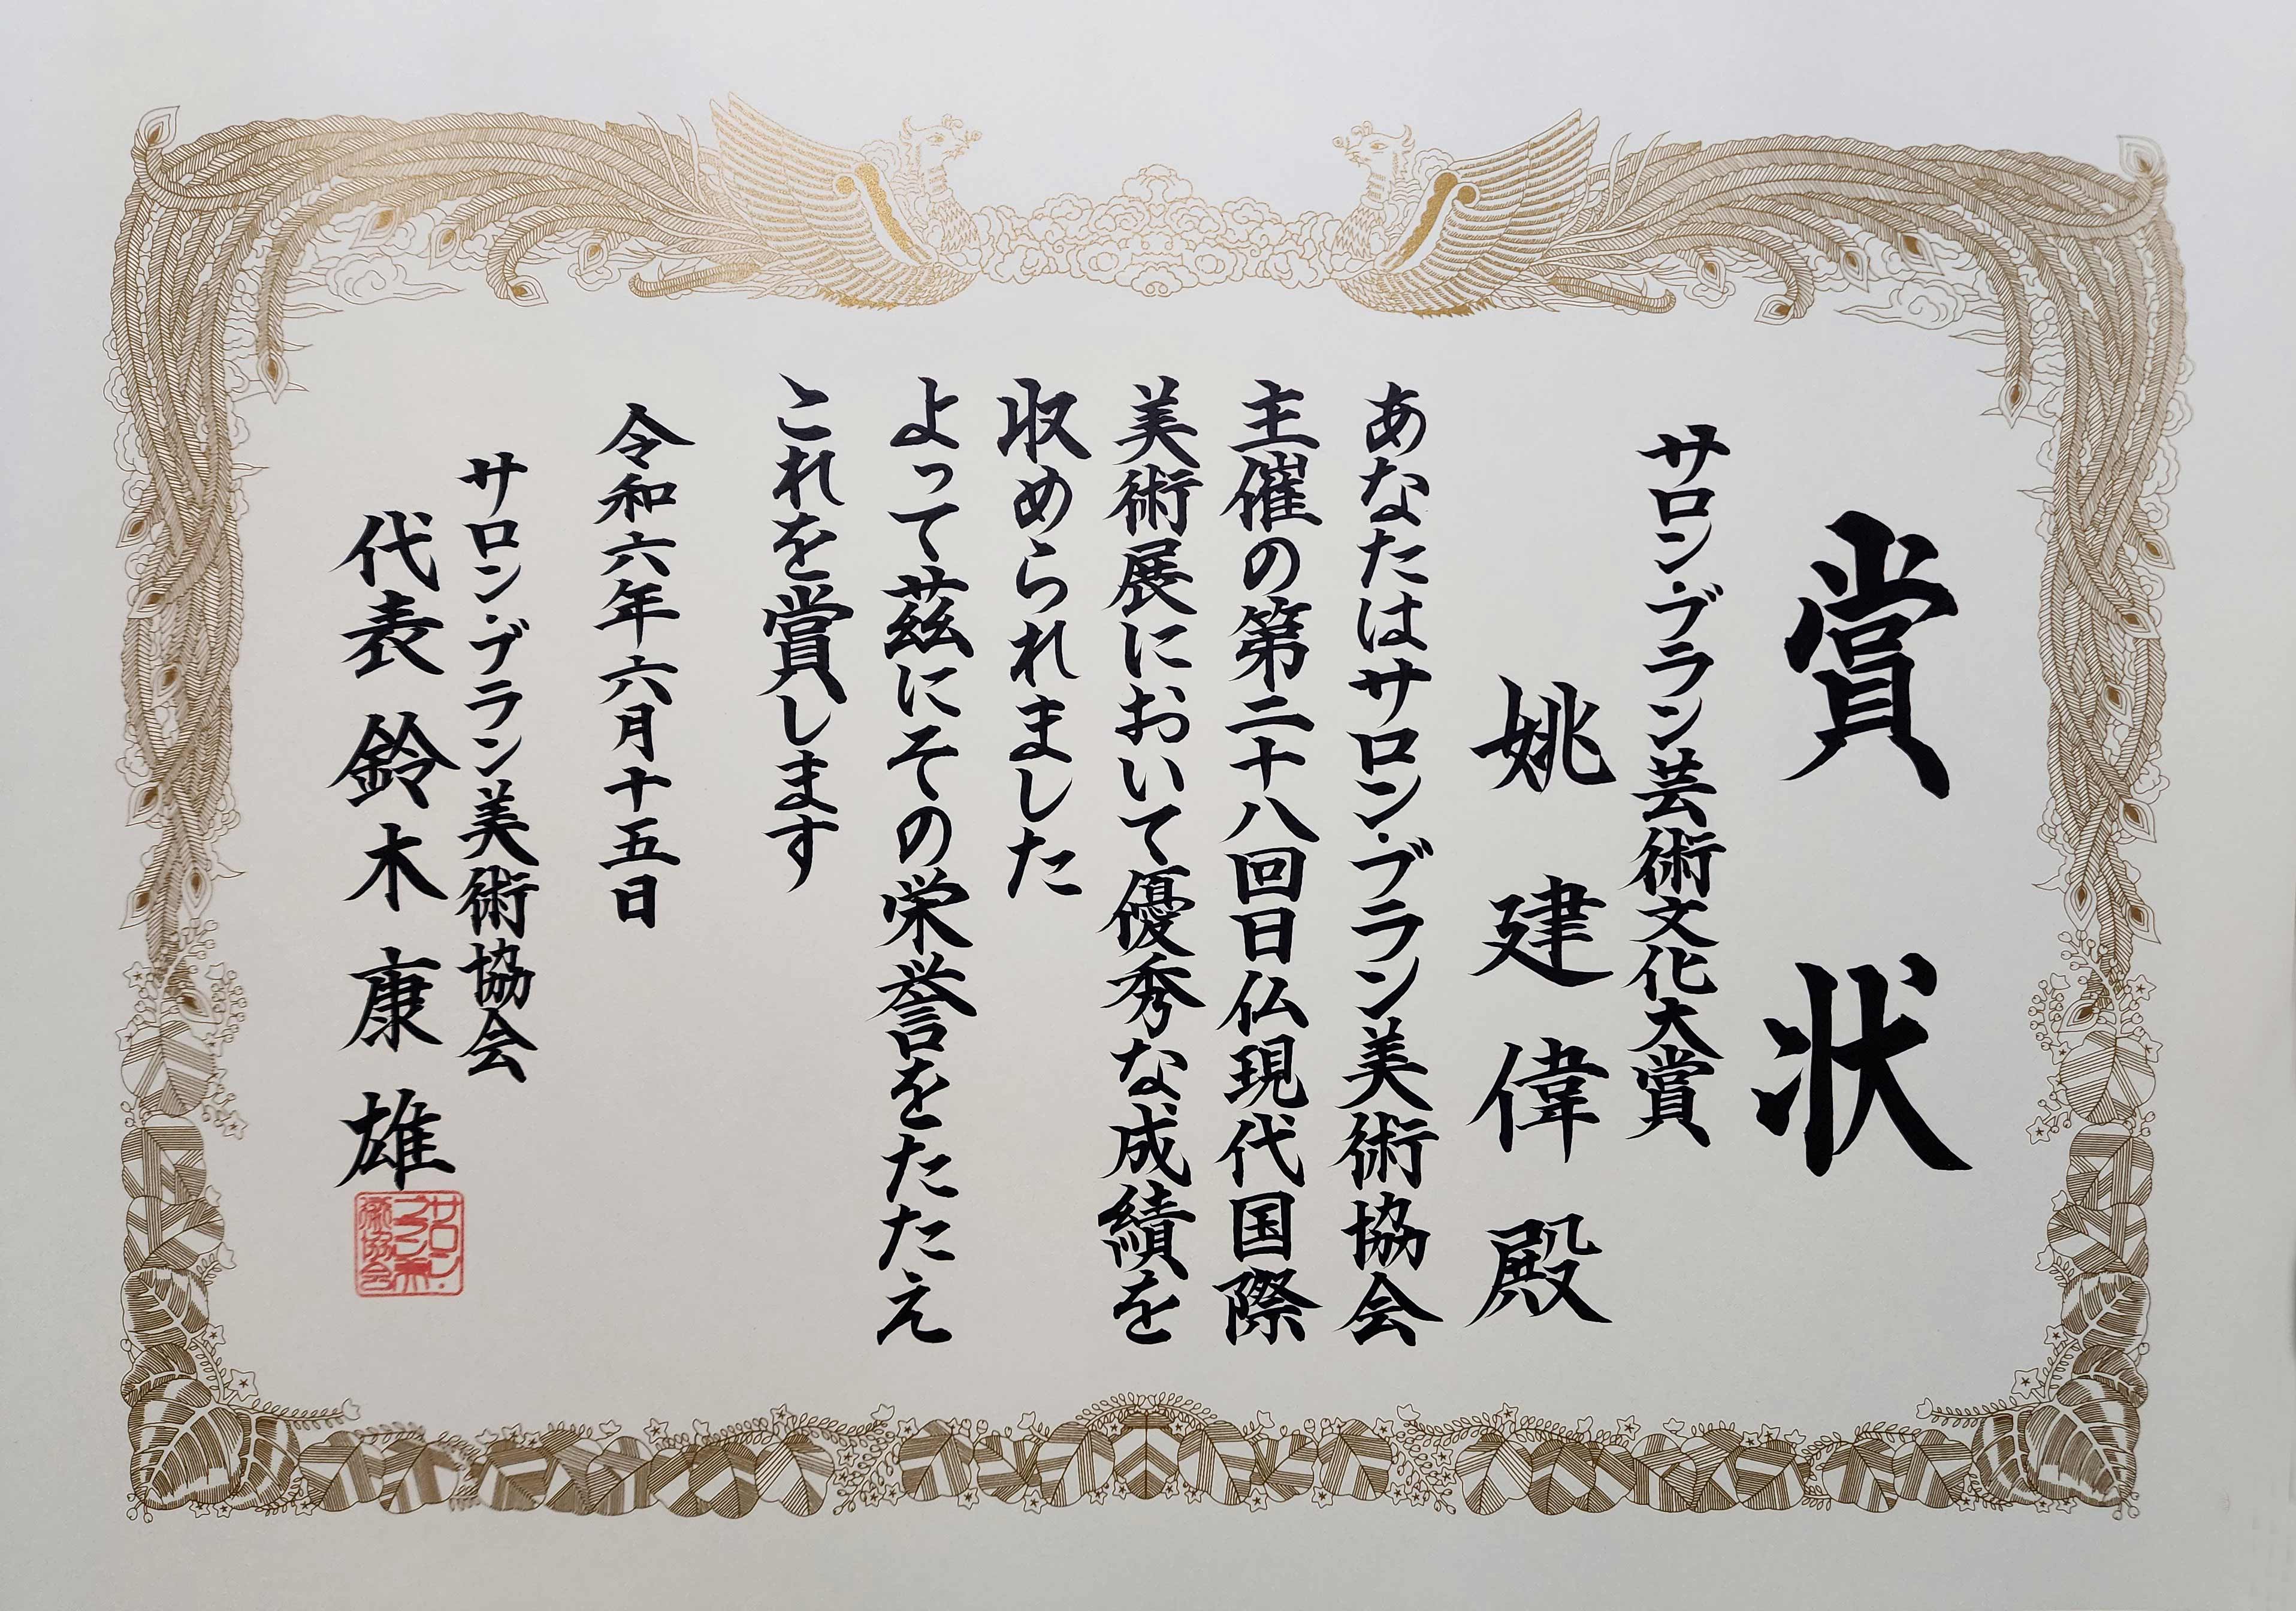 賞状
サロン・ブラン芸術文化大賞
姚建偉殿
あなたはサロン・ブラン美術協会
主催の第二十八回日仏現代国際
美術展において優秀な成績を
収められました
よって茲にその栄誉をたたえ
これを賞します
令和六年六月十五日
サロン・ブラン美術協会
代表 鈴木康雄
サロン・
ブラン美
術協会